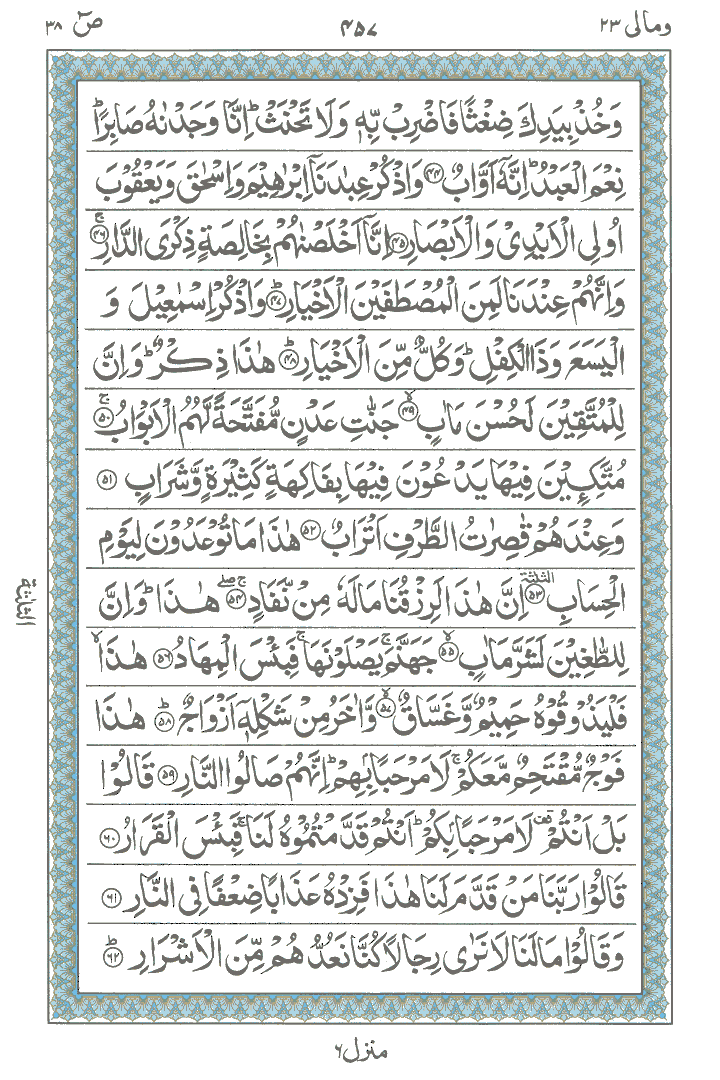 ومالی ٢٣
۴۵۷
صٓ ٣٨
وَخُذۡ بِيَدِكَ ضِغۡثًا فَاضۡرِبۡ بِّهٖ وَلَا تَحۡنَثۡ‌ؕ اِنَّا وَجَدۡنٰهُ صَابِرًا‌ؕ
نِعۡمَ الۡعَبۡدُ‌ؕ اِنَّهٗۤ اَوَّابٌ ﴿۴۴﴾ وَاذۡكُرۡ عِبٰدَنَاۤ اِبۡرٰهِيۡمَ وَاِسۡحٰقَ وَيَعۡقُوۡبَ
اُولِى الۡاَيۡدِىۡ وَالۡاَبۡصَارِ ﴿۴۵﴾ اِنَّاۤ اَخۡلَصۡنٰهُمۡ بِخَالِصَةٍ ذِكۡرَى الدَّارِ‌ۚ ﴿۴۶﴾
وَاِنَّهُمۡ عِنۡدَنَا لَمِنَ الۡمُصۡطَفَيۡنَ الۡاَخۡيَارِؕ ﴿۴۷﴾ وَاذۡكُرۡ اِسۡمٰعِيۡلَ وَ
الۡيَسَعَ وَذَا الۡكِفۡلِ‌ؕ وَكُلٌّ مِّنَ الۡاَخۡيَارِؕ ﴿۴۸﴾ هٰذَا ذِكۡرٌ‌ؕ وَاِنَّ
لِلۡمُتَّقِيۡنَ لَحُسۡنَ مَاٰبٍۙ ﴿۴۹﴾ جَنّٰتِ عَدۡنٍ مُّفَتَّحَةً لَّهُمُ الۡاَبۡوَابُ‌ۚ ﴿۵۰﴾
مُتَّكِـِٕيۡنَ فِيۡهَا يَدۡعُوۡنَ فِيۡهَا بِفَاكِهَةٍ كَثِيۡرَةٍ وَّشَرَابٍ ﴿۵۱﴾
وَعِنۡدَهُمۡ قٰصِرٰتُ الطَّرۡفِ اَتۡرَابٌ ﴿۵۲﴾ هٰذَا مَا تُوۡعَدُوۡنَ لِيَوۡمِ
الۡحِسَابِ ﴿۵۳﴾ الثلثة اِنَّ هٰذَا لَرِزۡقُنَا مَا لَهٗ مِنۡ نَّفَادٍ ‌ۚۖ ﴿۵۴﴾ هٰذَا‌ؕ وَاِنَّ
لِلطّٰغِيۡنَ لَشَرَّ مَاٰبٍۙ ﴿۵۵﴾ جَهَنَّمَ‌ۚ يَصۡلَوۡنَهَا‌ۚ فَبِئۡسَ الۡمِهَادُ ﴿۵۶﴾ هٰذَاۙ
فَلۡيَذُوۡقُوۡهُ حَمِيۡمٌ وَّغَسَّاقٌۙ ﴿۵۷﴾ وَّاٰخَرُ مِنۡ شَكۡلِهٖۤ اَزۡوَاجٌؕ ﴿۵۸﴾ هٰذَا
فَوۡجٌ مُّقۡتَحِمٌ مَّعَكُمۡ‌ۚ لَا مَرۡحَبًۢا بِهِمۡ‌ؕ اِنَّهُمۡ صَالُوا النَّارِ ﴿۵۹﴾ قَالُوۡا
بَلۡ اَنۡتُمۡ قف لَا مَرۡحَبًۢا بِكُمۡ‌ؕ اَنۡتُمۡ قَدَّمۡتُمُوۡهُ لَنَا‌ۚ فَبِئۡسَ الۡقَرَارُ ﴿۶۰﴾
قَالُوۡا رَبَّنَا مَنۡ قَدَّمَ لَنَا هٰذَا فَزِدۡهُ عَذَابًا ضِعۡفًا فِى النَّارِ ﴿۶۱﴾
وَقَالُوۡا مَا لَنَا لَا نَرٰى رِجَالًا كُنَّا نَعُدُّهُمۡ مِّنَ الۡاَشۡرَارِؕ ﴿۶۲﴾
منزل ۶